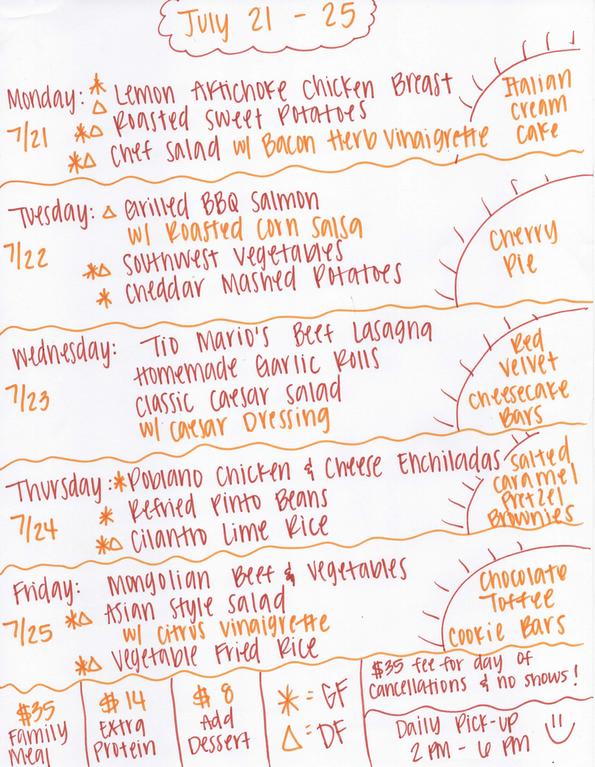 July 21 - 25
Monday: * Lemon Artichoke Chicken Breast
7/21
△ Roasted Sweet Potatoes
*△ Chef Salad w/ Bacon Herb Vinaigrette
Italian
Cream
Cake
Tuesday: △ Grilled BBQ Salmon
7/22
w/ Roasted Corn Salsa
*△ Southwest Vegetables
* Cheddar Mashed Potatoes
Cherry
Pie
Wednesday: Tio Mario's Beef Lasagna
7/23
Homemade Garlic Rolls
Classic Caesar Salad
w/ Caesar Dressing
Red
Velvet
Cheesecake
Bars
Thursday: * Poblano Chicken & Cheese Enchiladas
7/24
* Refried Pinto Beans
*△ Cilantro Lime Rice
Salted
Caramel
Pretzel
Brownies
Friday: Mongolian Beef & Vegetables
7/25
*△ Asian Style Salad
w/ Citrus Vinaigrette
*△ Vegetable Fried Rice
Chocolate
Toffee
Cookie Bars
$35
Family
Meal
$14
Extra
Protein
$8
Add
Dessert
* = GF
△ = DF
$35 fee for day of
cancellations & no shows!
Daily Pick-up
2 PM - 6 PM